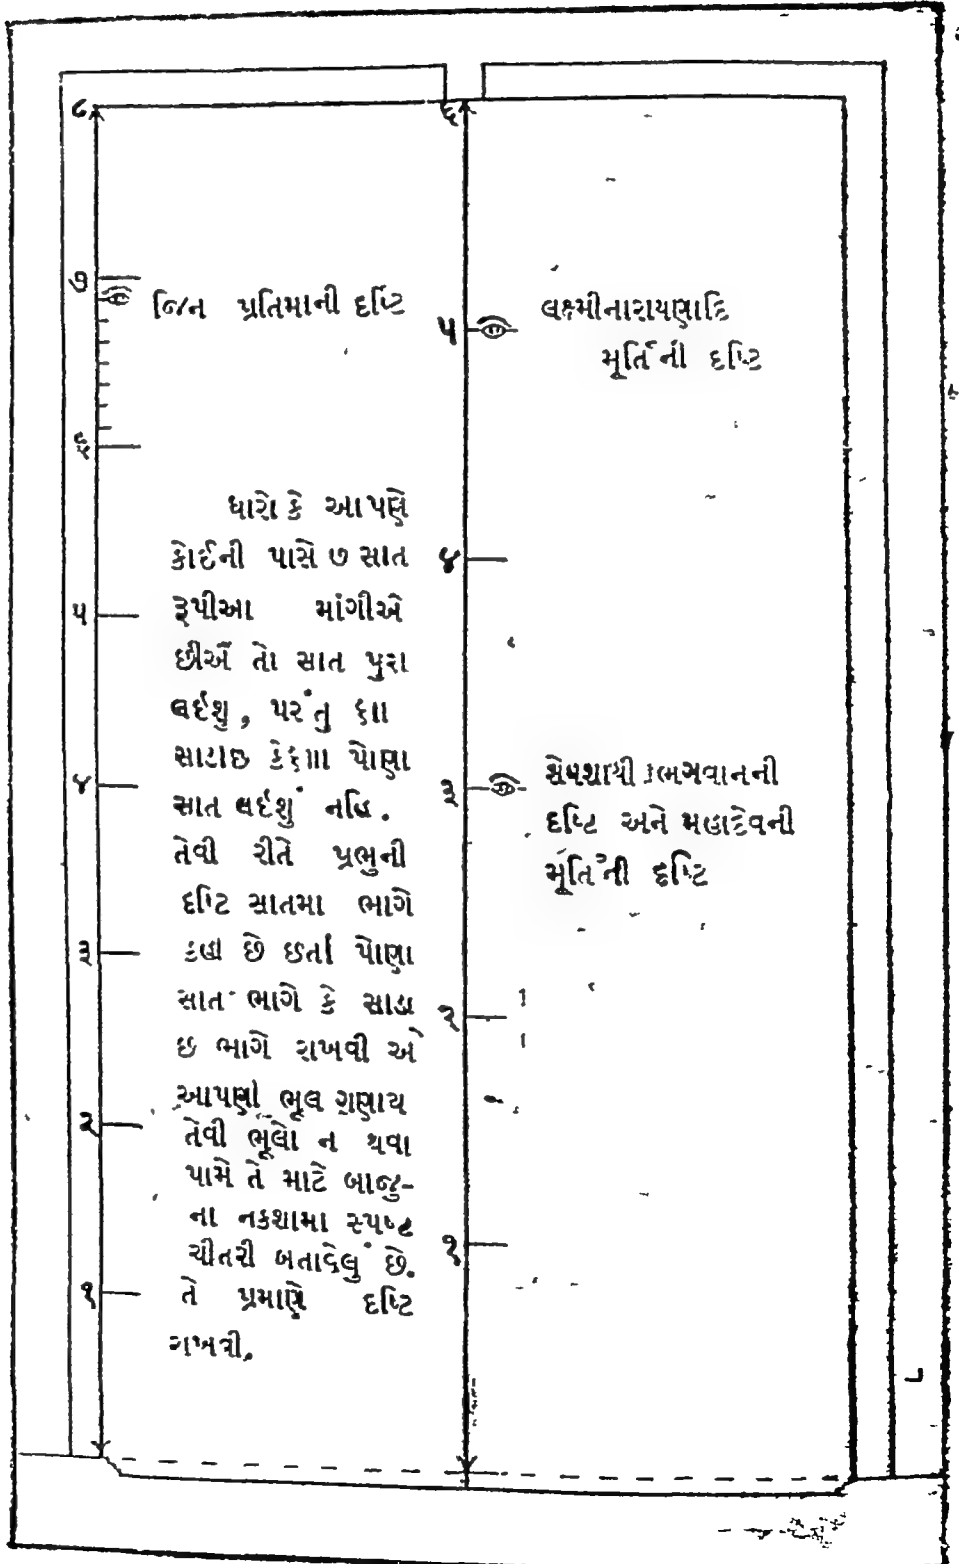 ૮
૭
જિન પ્રતિમાની દષ્ટિ
૬
ધારો કે આપણે
કોઈની પાસે ૭ સાત
રૂપીઆ માંગીએ
છીએં તો સાત પુરા
લઈશુ, પરંતુ ૬ાા
સાડાછ કે ૬ાાા પોણા
સાત લઈશું નહિ.
તેવી રીતે પ્રભુની
દષ્ટિ સાતમા ભાગે
કહી છે છતાં પોણા
સાત ભાગે કે સાડા
છ ભાગે રાખવી એ
આપણી ભૂલ ગણાય
તેવી ભૂલો ન થવા
પામે તે માટે બાજુ-
ના નકશામા સ્પષ્ટ
ચીતરી બતાવેલું છે.
તે પ્રમાણે દષ્ટિ
રાખવી.
૫
૪
૩
૨
૧
૬
૫
લક્ષ્મીનારાયણાદિ
મૂર્તિની દષ્ટિ
૪
૩
શેષશાયી ભગવાનની
દષ્ટિ અને મહાદેવની
મૂર્તિની દષ્ટિ
૨
૧